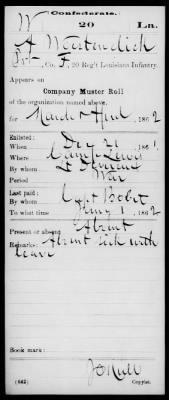 Confederate.
W 20 La.
A Westendick
Pvt, Co. F, 20 Reg't Louisiana Infantry.
Appears on
Company Muster Roll
of the organization named above,
for March & April, 1862
Enlisted:
When Dec 21, 1861
Where Camp Lewis
By whom Lt
Period War
Last paid:
By whom Capt
To what time Jany 1, 1862
Present or absent Absent
Remarks: Absent sick with
leave
Book mark:
(642) Copyist.